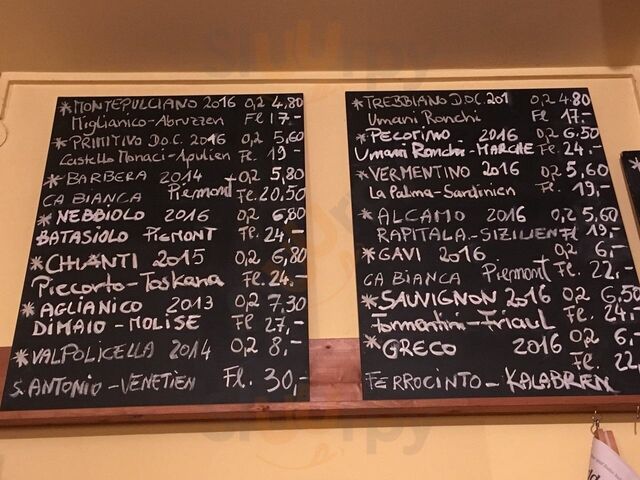 *MONTEPULCIANO 2016 0,2 4,80
Miglianico-Abruzzen Fl 17.-
*PRIMITIVO D.o.C. 2016 0,2 5,60
Castello Monaci-Apulien Fl. 19-
*BARBERA 2014 0,2 5,80
CA BIANCA Piemont Fl. 20,50
*NEBBIOLO 2016 0,2 6,80
BATASIOLO PIEMONT Fl. 24,-
*CHIANTI 2015 0,2 6,80
Piccorto-Toskana Fl. 24.-
*AGLIANICO 2013 0,2 7,30
DIMAIO-MOLISE Fl 27,-
*VALPOLICELLA 2014 0,2 8,-
S. ANTONIO-VENETIEN Fl. 30,-
*TREBBIANO D.O.C. 201 0,2 4.80
Umani Ronchi Fl. 17.-
*PECORINO 2016 0,2 6.50
Umani Ronchi-MARCHE Fl. 24,-
*VERMENTINO 2016 0,2 5,60
La Palma-Sardinien Fl. 19,-
*ALCAMO 2016 0,2 5,60
RAPITALA-SIZILIEN Fl 19,-
*GAVI 2016 0,2 6,-
CA BIANCA Piemont Fl. 22,-
*SAUVIGNON 2016 0,2 6,50
Tormentini-Friaul Fl. 24,-
*GRECO 2016 0,2 6,
FERROCINTO-KALABRIEN Fl. 22,